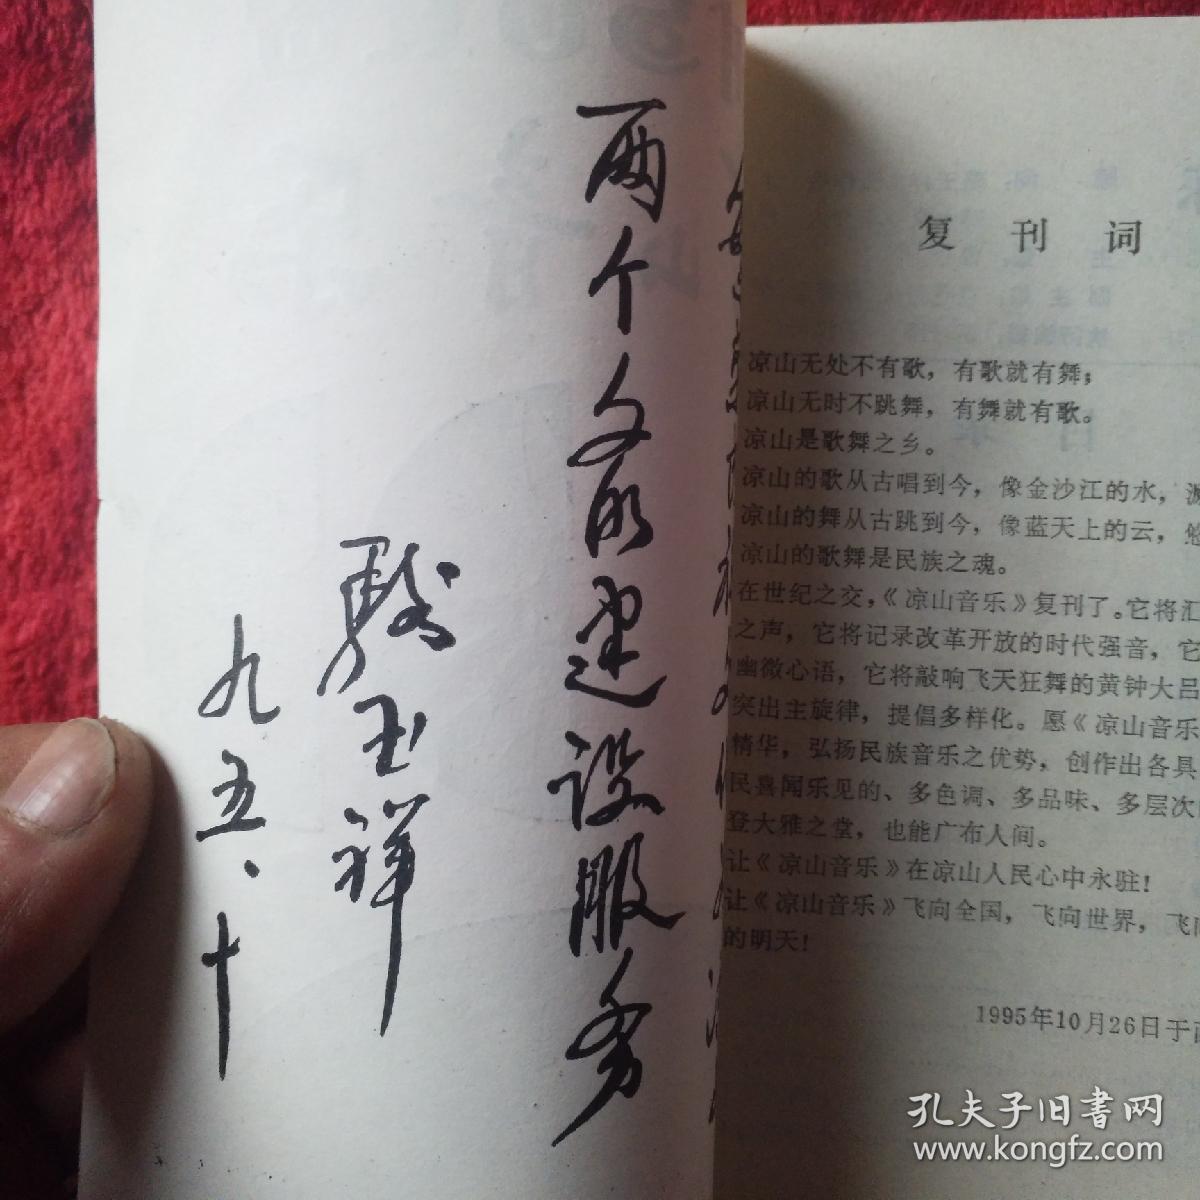 两个文明建设服务
玉祥
九五、十
复刊词
凉山无处不有歌，有歌就有舞；
凉山无时不跳舞，有舞就有歌。
凉山是歌舞之乡。
凉山的歌从古唱到今，像金沙江的水，
凉山的舞从古跳到今，像蓝天上的云，悠
凉山的歌舞是民族之魂。
在世纪之交，《凉山音乐》复刊了。它将汇
之声，它将记录改革开放的时代强音，它
幽微心语，它将敲响飞天狂舞的黄钟大吕
突出主旋律，提倡多样化。愿《凉山音乐
精华，弘扬民族音乐之优势，创作出各具
民喜闻乐见的、多色调、多品味、多层次
登大雅之堂，也能广布人间。
让《凉山音乐》在凉山人民心中永驻！
让《凉山音乐》飞向全国，飞向世界，飞向
的明天！
1995年10月26日于
孔夫子旧书网
www.kongfz.com